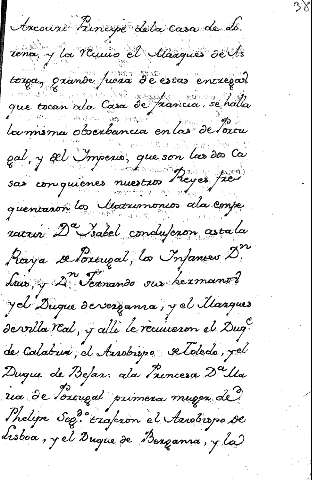 38
Arcourt Principe de la Casa de Lo
rena, y la reciuio el Marques de As
torga, grande fuera de estas entregas
que tocan a la Casa de francia. se halla
la misma obserbancia en las de Portu
gal, y del Imperio, que son las dos Ca
sas con quienes nuestros Reyes fre
quentaron los Matrimonios a la empe
ratriz Dª Ysabel condujeron asta la
Raya de Portugal, los Infantes Dn
Luis, y Dn Fernando sus hermanos
y el Duque de verganza, y el Marques
de villa Real, y alli le reciuieron el Duqe
de Calabria, el Arzobispo de Toledo, y el
Duque de Bejar: a la Princesa Dª Ma
ria de Portugal primera muger de Dn
Phelipe Segdo trajeron el Arzobispo de
Lisboa, y el Duque de Berganza, y la